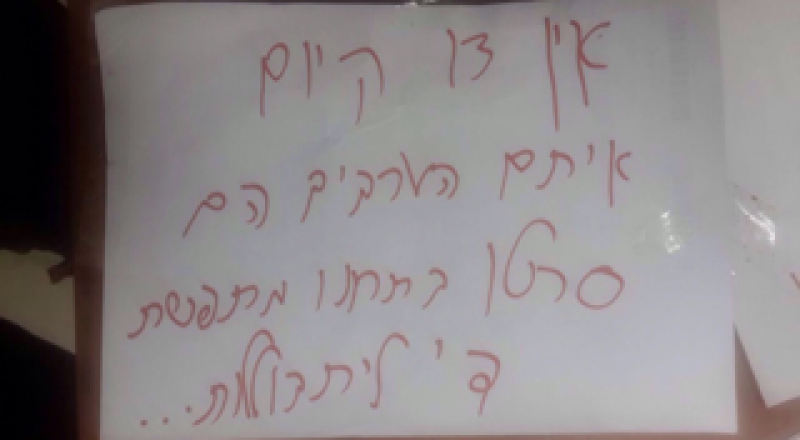 אין דו קיום
איתם הערבים הם
סרטן בתחנו מתפשת
די ליתבוללות...